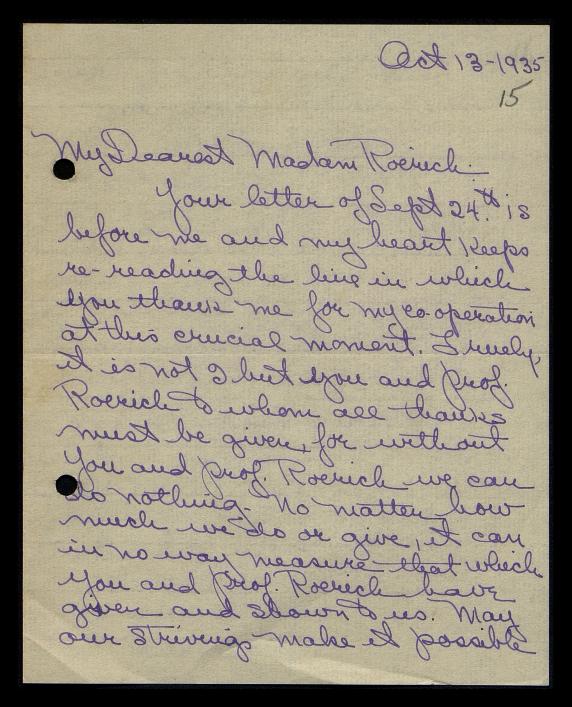 Oct 13-1935
15
My Dearest Madam Roerich.
Your letter of Sept 24.th is
before me and my heart keeps
re-reading the line in which
you thank me for my co-operation
at this crucial moment. Truely,
it is not I but you and prof.
Roerich to whom all thanks
must be given, for without
you and prof. Roerich we can
do nothing. No matter how
much we do or give, it can
in no way measure that which
you and prof. Roerich have
given and shown to us. May
our strivings make it possible